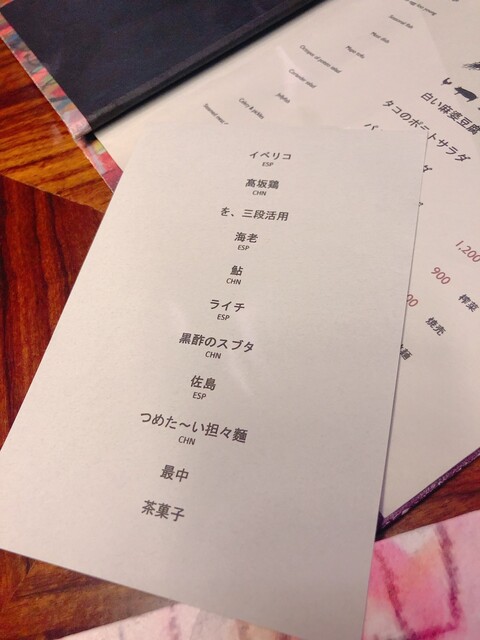 イベリコ
ESP
高坂鶏
CHN
を、三段活用
海老
ESP
鮎
CHN
ライチ
ESP
黒酢のスブタ
CHN
佐島
ESP
つめた〜い担々麺
CHN
最中
茶菓子
白い麻婆豆腐
タコのポテトサラダ
1,200
900
搾菜
焼売